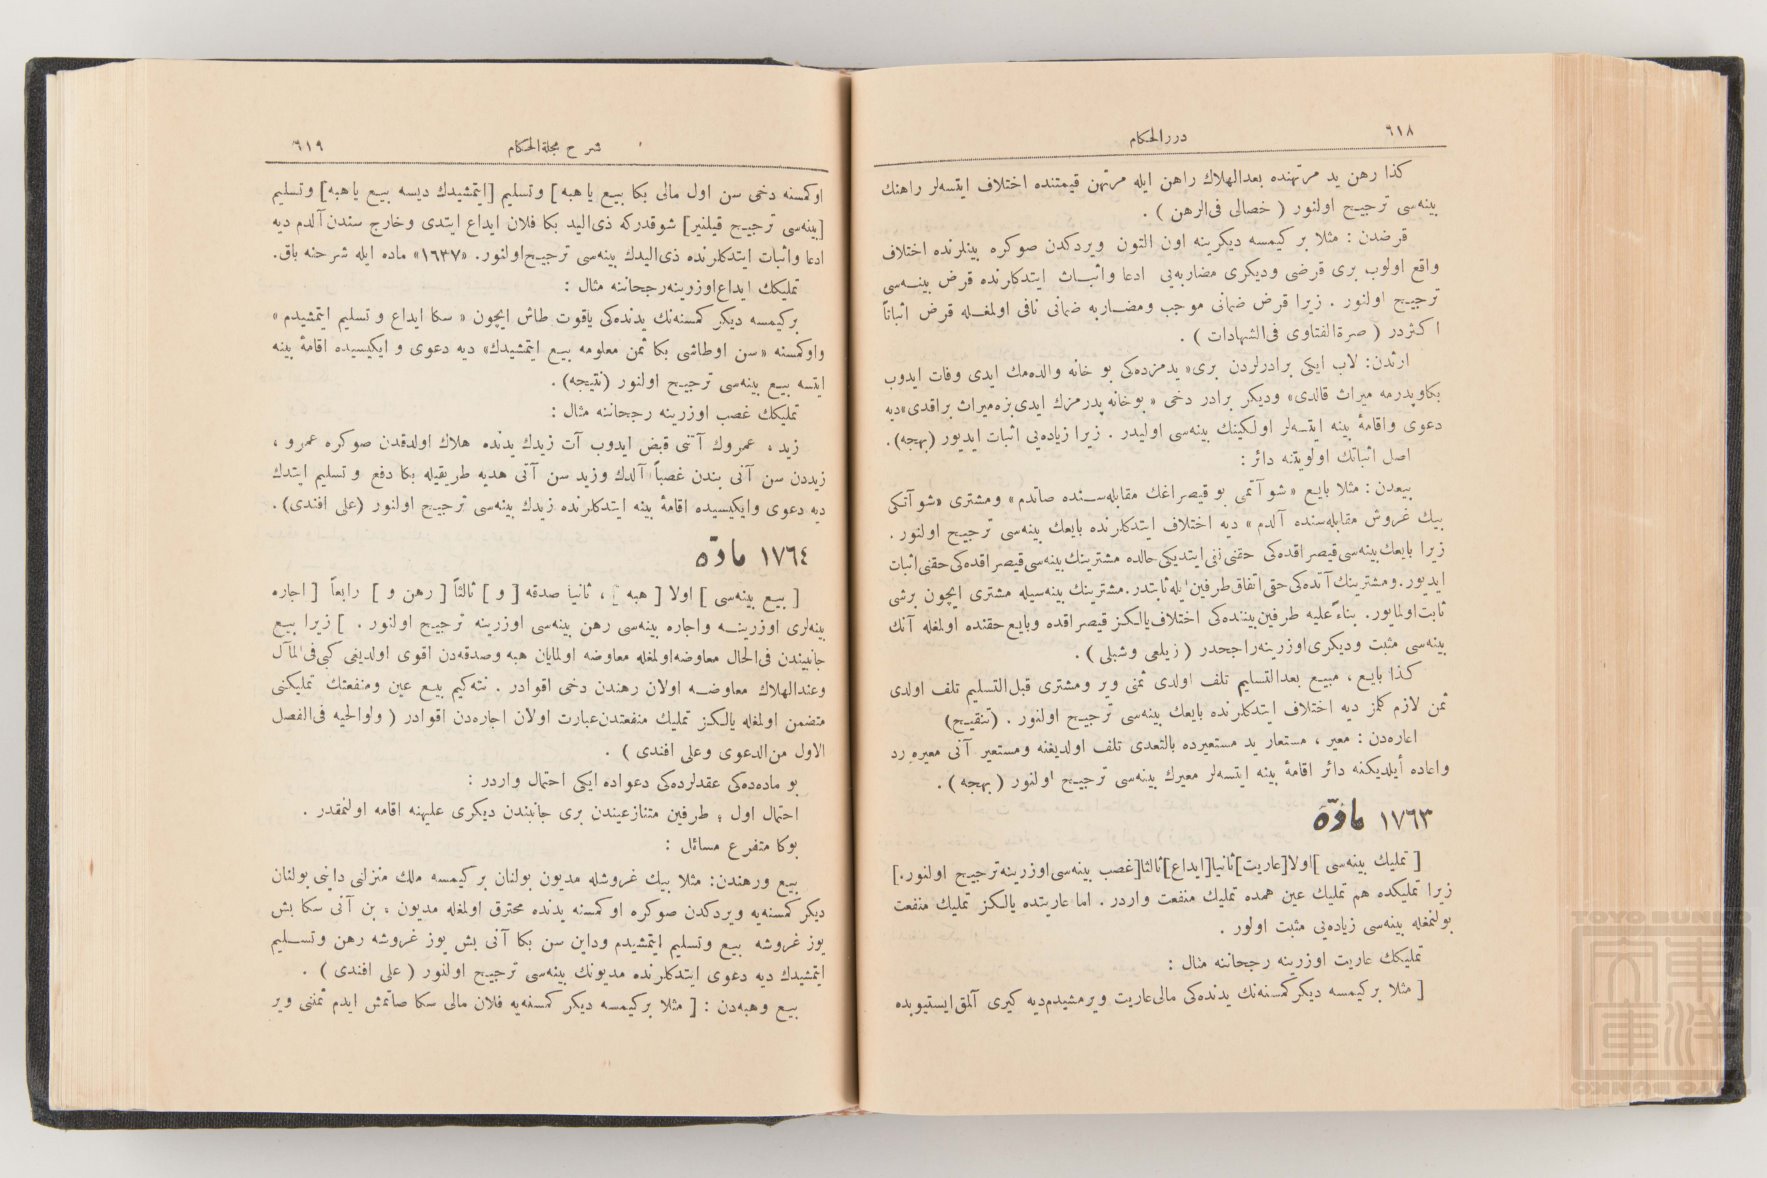 ٦١٨
درر الحكام
كذا رهن يد مرتهنده بعدالهلاك راهن ايله مرتهن قيمتنده اختلاف ايتسه‌لر راهنك
بينه‌سى ترجيح اولنور ( خصالى فى‌الرهن ) .
قرضدن : مثلا بر كيمسه ديكرينه اون التون ويردكدن صوكره بينلرنده اختلاف
واقع اولوب برى قرضى وديكرى مضاربه‌يى ادعا واثبات ايتدكلرنده قرض بينه‌سى
ترجيح اولنور . زيرا قرض ضمانى موجب ومضاربه ضمانى نافى اولمغله قرض اثباتاً
اكثردر ( صرةالفتاوى فى‌الشهادات ) .
ارثدن: لاب ايكى برادرلردن برى« يدمزده‌كى بو خانه والده‌مك ايدى وفات ايدوب
بكاوپدرمه ميراث قالدى» وديكر برادر دخى « بوخانه پدرمزك ايدى بزه‌ميراث براقدى»ديه
دعوى واقامهٔ بينه ايتسه‌لر اولكينك بينه‌سى اوليدر . زيرا زياده‌يى اثبات ايديور (بهجه).
اصل اثباتك اولويتنه دائر :
بيعدن : مثلا بايع « شو آتمى بو قيصراغك مقابله‌سنده صاتدم» ومشترى «شو آتكى
بيك غروش مقابله‌سنده آلدم » ديه اختلاف ايتدكلرنده بايعك بينه‌سى ترجيح اولنور .
زيرا بايعك‌بينه‌سى‌قيصراقده‌كى حقنى‌نفى‌ايتديكى‌حالده مشترينك‌بينه‌سى‌قيصراقده‌كى‌حقنى‌اثبات
ايديور.ومشترينك‌آتده‌كى‌حقى‌اتفاق‌طرفين‌ايله‌ثابتدر.مشترينك بينه‌سيله مشترى ايچون برشى
ثابت‌اولمايور. بناءً‌عليه طرفين‌بيننده‌كى اختلاف‌يالكز قيصراقده وبايع‌حقنده اولمغله آنك
بينه‌سى مثبت وديكرى‌اوزرينه‌راجحدر ( زيلعى وشبلى ) .
كذا بايع ، مبيع بعدالتسليم تلف اولدى ثمنى وير ومشترى قبل‌التسليم تلف اولدى
ثمن لازم كلمز ديه اختلاف ايتدكلرنده بايعك بينه‌سى ترجيح اولنور . (تنقيح)
اعاره‌دن : معير ، مستعار يد مستعيرده بالتعدى تلف اولديغنه ومستعير آنى معيره رد
واعاده أيلديكنه دائر اقامهٔ بينه ايتسه‌لر معيرك بينه‌سى ترجيح اولنور ( بهجه ) .
١٧٦٣ مادّه
[ تمليك بينه‌سى ]اولا[عاريت]ثانيا[ايداع]ثالثا[غصب بينه‌سى‌اوزرينه‌ترجيح اولنور.]
زيرا تمليكده هم تمليك عين همده تمليك منفعت واردر . اما عاريتده يالكز تمليك منفعت
بولنمغله بينه‌سى زياده‌يى مثبت اولور .
تمليكك عاريت اوزرينه رجحاننه مثال :
[ مثلا بر كيمسه ديكركمسنه‌نك يدنده‌كى مالى‌عاريت ويرمشيدم‌ديه كيرى آلمق‌ايستيوبده
شرح مجلةالاحكام
٦١٩
اوكمسنه دخى سن اول مالى بكا بيع ياهبه] وتسليم [ايتمشيدك ديسه بيع ياهبه] وتسليم
[بينه‌سى ترجيح قيلنير] شوقدركه ذى‌اليد بكا فلان ايداع ايتدى وخارج سندن‌آلدم ديه
ادعا واثبات ايتدكلرنده ذى‌اليدك بينه‌سى ترجيح‌اولنور. «١٦٣٧» ماده ايله شرحنه باق.
تمليكك ايداع‌اوزرينه‌رجحاننه مثال :
بركيمسه ديكر كمسنه‌نك يدنده‌كى ياقوت طاش ايچون « سكا ايداع وتسليم ايتمشيدم »
واوكمسنه «سن اوطاشى بكا ثمن معلومه بيع ايتمشيدك» ديه دعوى وايكيسيده اقامهٔ بينه
ايتسه بيع بينه‌سى ترجيح اولنور (نتيجه) .
تمليكك غصب اوزرينه رجحاننه مثال :
زيد ، عمروك آتنى قبض ايدوب آت زيدك يدنده هلاك اولدقدن صوكره عمرو ،
زيددن سن آتى بندن غصباً آلدك وزيد سن آتى هديه طريقيله بكا دفع وتسليم ايتدك
ديه دعوى وايكيسيده اقامهٔ بينه ايتدكلرنده زيدك بينه‌سى ترجيح اولنور (على افندى) .
١٧٦٤ مادّه
[ بيع بينه‌سى ] اولا [ هبه ] ، ثانيا صدقه [ و ] ثالثاً [ رهن و ] رابعاً [ اجاره
بينه‌لرى اوزرينه واجاره بينه‌سى رهن بينه‌سى اوزرينه ترجيح اولنور . ] زيرا بيع
جانبيندن فى‌الحال معاوضه‌اولمغله معاوضه اولمايان هبه وصدقه‌دن اقوى اولديغى كبى‌فى‌المآل
وعندالهلاك معاوضه اولان رهندن دخى اقوادر . نته‌كيم بيع عين ومنفعتك تمليكنى
متضمن اولمغله يالكز تمليك منفعتدن‌عبارت اولان اجاره‌دن اقوادر ( ولوالحيه فى‌الفصل
الاول من‌الدعوى وعلى افندى ) .
بو ماده‌ده‌كى عقدلرده‌كى دعواده ايكى احتمال واردر :
احتمال اول ؛ طرفين متنازعيندن برى جانبندن ديكرى عليهنه اقامه اولنمقدر .
بوكا متفرع مسائل :
بيع ورهندن: مثلا بيك غروشله مديون بولنان بركيمسه ملك منزلنى داينى بولنان
ديكر كمسنه‌يه ويردكدن صوكره اوكمسنه يدنده محترق اولمغله مديون ، بن آنى سكا بش
يوز غروشه بيع وتسليم ايتمشيدم وداين سن بكا آنى بش يوز غروشه رهن وتسليم
ايتمشيدك ديه دعوى ايتدكلرنده مديونك بينه‌سى ترجيح اولنور ( على افندى ) .
بيع وهبه‌دن : [ مثلا بركيمسه ديكر كمسنه‌يه فلان مالى سكا صاتمش ايدم ثمننى وير
TOYO BUNKO
東洋文庫
TOYO BUNKO